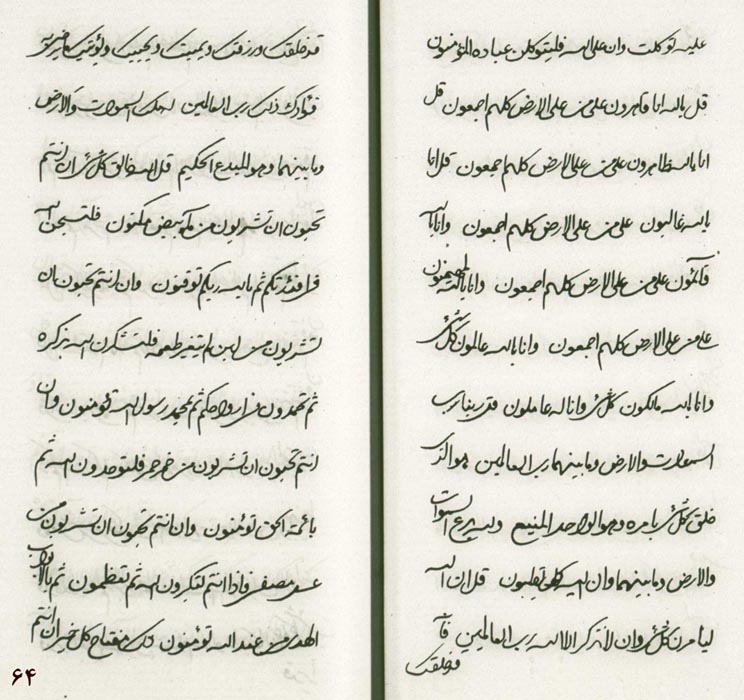 عليه توكلت وان على الله فليتوكلن عباده المؤمنون
قل بالله انا قاهرون على من على الارض كلهم اجمعون قل
انا بالله ظاهرون على من على الارض كلهم اجمعون قل انا
بالله غالبون على من على الارض كلهم اجمعون وانا بالله
قائمون على من على الارض كلهم اجمعون وانا بالله لمهيمنون
على من على الارض كلهم اجمعون وانا بالله عالمون كل شئ
وانا بالله مالكون كل شئ وانا له عاملون
السموات والارض وما بينهما رب العالمين هو الذى
خلق كل شئ بامره وهو الواحد المنيع السموات
والارض وما بينهما وان قل ان الله
كل شئ وان لا تذكر الا الله رب العالمين
قد خلقك
قد خلقك ورزقك ويميتك ويحييك
فؤادك ذلك رب العالمين له ملك السموات والارض
وما بينهما وهو المبدع الحكيم قل الله خالق كل شئ ان انتم
تحبون ان تشربون من ماء بيض مكنون فلتسبحن الله
فى افئدتكم ثم بالله ربكم توقنون وان انتم تحبون ان
تشربون من لبن لم يتغير طعمه فلتشكرن الله بذكره
ثم تهدون من ارواحكم ثم بمحمد رسول الله تؤمنون وان
انتم تحبون ان تشربون من خمر حمر فلتوحدون الله ثم
بائمة الحق تؤمنون وان انتم تحبون ان تشربون من
عسل مصفى فاذا انتم لتكبرون الله ثم تعظمون ثم بالابواب
الهدى من عند الله تؤمنون ذلك مفتاح كل خير ان انتم
۶۴